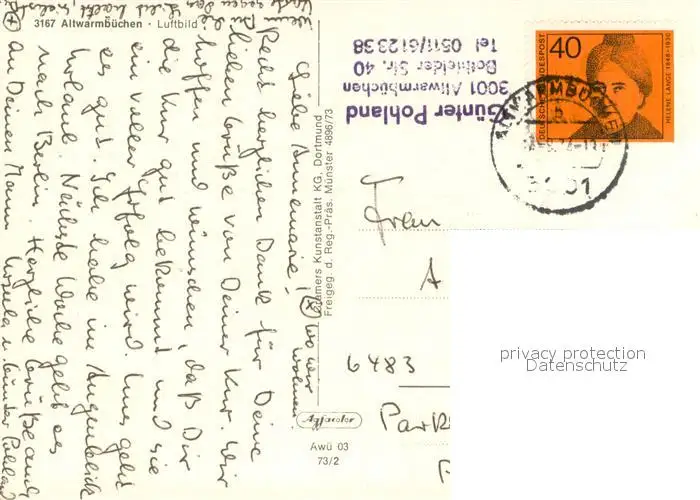 3167 Altwarmbüchen · Luftbild
Liebe Annemarie!
Recht herzlichen Dank für Deine
lieben Grüße von Deiner Kur. Wir
hoffen und wünschen, daß Dir
die Kur gut bekommt und sie
ein voller Erfolg wird. Uns geht
es gut. Ich habe im Augenblick
Urlaub. Nächste Woche geht es
nach Berlin. Herzliche Grüße auch
an Deinen Mann Ursula u. Günter Pohland
wo wir
wohnen
Cramers Kunstanstalt KG, Dortmund
Freigeg. d. Reg.-Präs. Münster 4896/73
Günter Pohland
3001 Altwarmbüchen
Bothfelder Str. 40
Tel. 0511/612338
DEUTSCHE BUNDESPOST
40
HELENE LANGE 1848-1930
ALTWARMBÜCHEN
3001
Frau
A
6483
Park
Agfacolor
Awü 03
73/2
privacy protection
Datenschutz